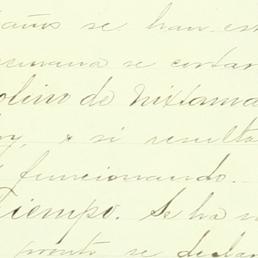 años se han est
semana se cortar
olino de nixtama
oy, & si resulta
funcionando.
Tiempo. Se ha
pronto se decla